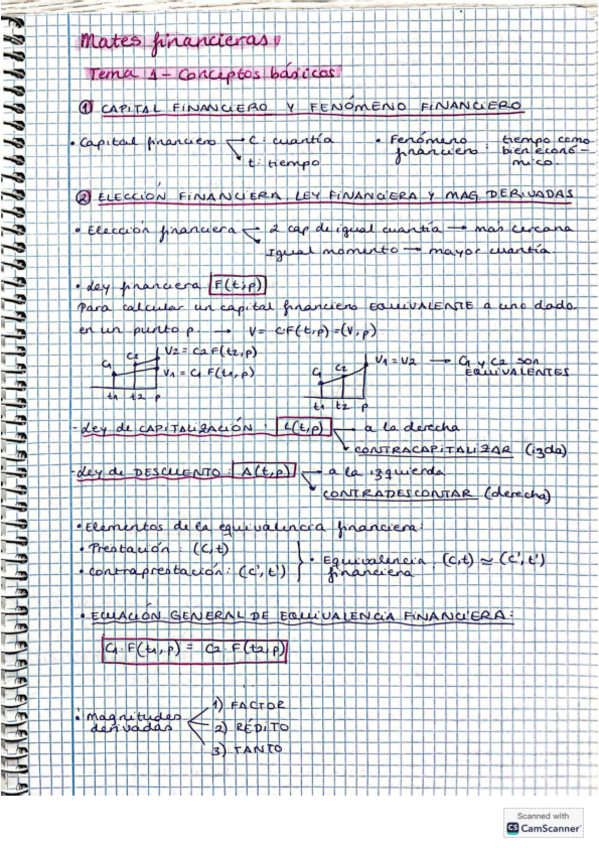 Mates financieras
Tema 1 - Conceptos básicos
① CAPITAL FINANCIERO Y FENÓMENO FINANCIERO
• Capital financiero → C: cuantía
→ t: tiempo
• Fenómeno financiero: tiempo como bien económico.
② ELECCIÓN FINANCIERA, LEY FINANCIERA Y MAG. DERIVADAS
• Elección financiera → 2 cap de igual cuantía → más cercana
→ Igual momento → mayor cuantía.
• Ley financiera F(t;p)
Para calcular un capital financiero EQUIVALENTE a uno dado
en un punto p. → V = C·F(t,p) = (V,p)
C1 C2 V2 = C2 F(t2,p)
V1 = C1 F(t1,p)
t1 t2 p
C1 C2 V1 = V2 → C1 y C2 SON EQUIVALENTES
t1 t2 p
- Ley de CAPITALIZACIÓN: L(t,p) → a la derecha
→ CONTRACAPITALIZAR (izda)
- Ley de DESCUENTO: A(t,p) → a la izquierda
→ CONTRADESCONTAR (derecha)
• Elementos de la equivalencia financiera:
• Prestación: (C,t)
• Contraprestación: (C',t')
• Equivalencia financiera: (C,t) ≃ (C',t')
• ECUACIÓN GENERAL DE EQUIVALENCIA FINANCIERA:
C1·F(t1,p) = C2·F(t2,p)
• Magnitudes derivadas
1) FACTOR
2) RÉDITO
3) TANTO
Scanned with
CS CamScanner